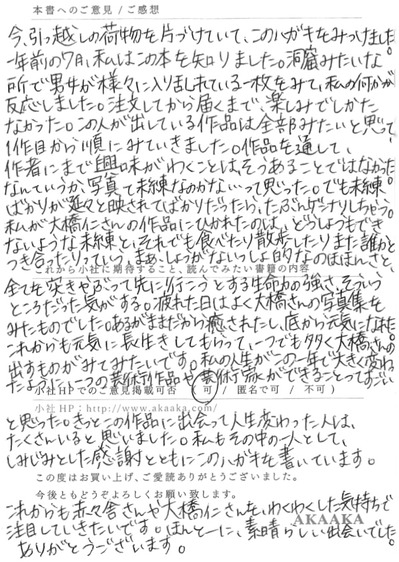 本書へのご意見 / ご感想
今、引っ越しの荷物を片づけていて、このハガキをみつけました。
一年前の7月、私はこの本を知りました。洞窟みたいな
所で男女が様々に入り乱れている一枚をみて、私の何かが
反応しました。注文してから届くまで、楽しみでしかた
なかった。この人が出している作品は全部みたいと思って
1作目から順にみていきました。作品を通して、
作者にまで興味がわくことは、そうあることではなかった。
なんていうか、写真て未練なのかな…って思った。でも未練
ばかりが延々と映されてばかりだったら、たぶんゲンナリしちゃう。
私が大橋仁さんの作品にひかれたのは、どうしようもでき
ないような未練と、それでも食べたり散歩したりまた誰かと
つき合ったりっていう、まあ、しょうがないっしょ的なのほほんさと、
これから小社に期待すること、読んでみたい書籍の内容
全てを突きやぶって先に行こうとする生命力の強さ、そういう
ところだった気がする。疲れた日はよく大橋さんの写真集を
みたものでした。あるがままだから癒されたし、底から元気になれた。
これからも元気に長生きしてもらって、いつでも多く大橋さんの
出すものがみてみたいです。私の人生がこの一年で大きく変わっ
たように、一つの芸術作品や芸術家ができることってすごい
小社HPでのご意見掲載可否 ( 可 / 匿名で可 / 不可 )
小社HP：http://www.akaaka.com/
と思った。きっとこの作品に出会って人生変わった人は、
たくさんいると思いました。私もその中の一人として、
しみじみとした感謝とともにこのハガキを書いています。
この度はお買い上げ、ご愛読ありがとうございました。
今後ともどうぞよろしくお願い致します。
これからも赤々舎さんや大橋仁さんを、わくわくした気持ちで
AKAAKA
注目していきたいです。ほんとーに、素晴らしい出会いでした。
ありがとうございます。